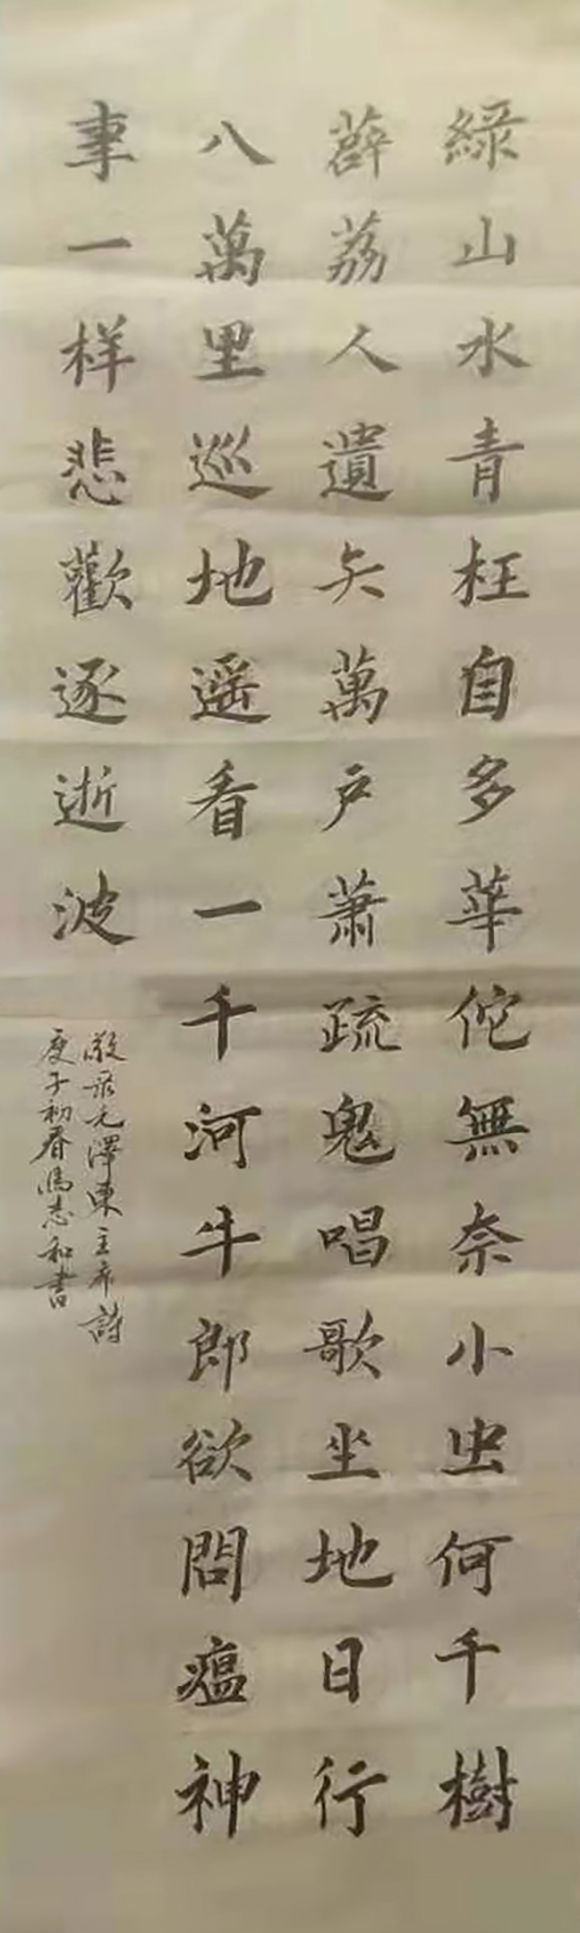 緑山水青枉自多華佗無奈小虫何千樹
薜荔人遺矢萬户蕭疏鬼唱歌坐地日行
八萬里巡地遥看一千河牛郎欲問瘟神
事一样悲歡逐逝波
敬录毛澤東主席詩
庚子初春馮志和書